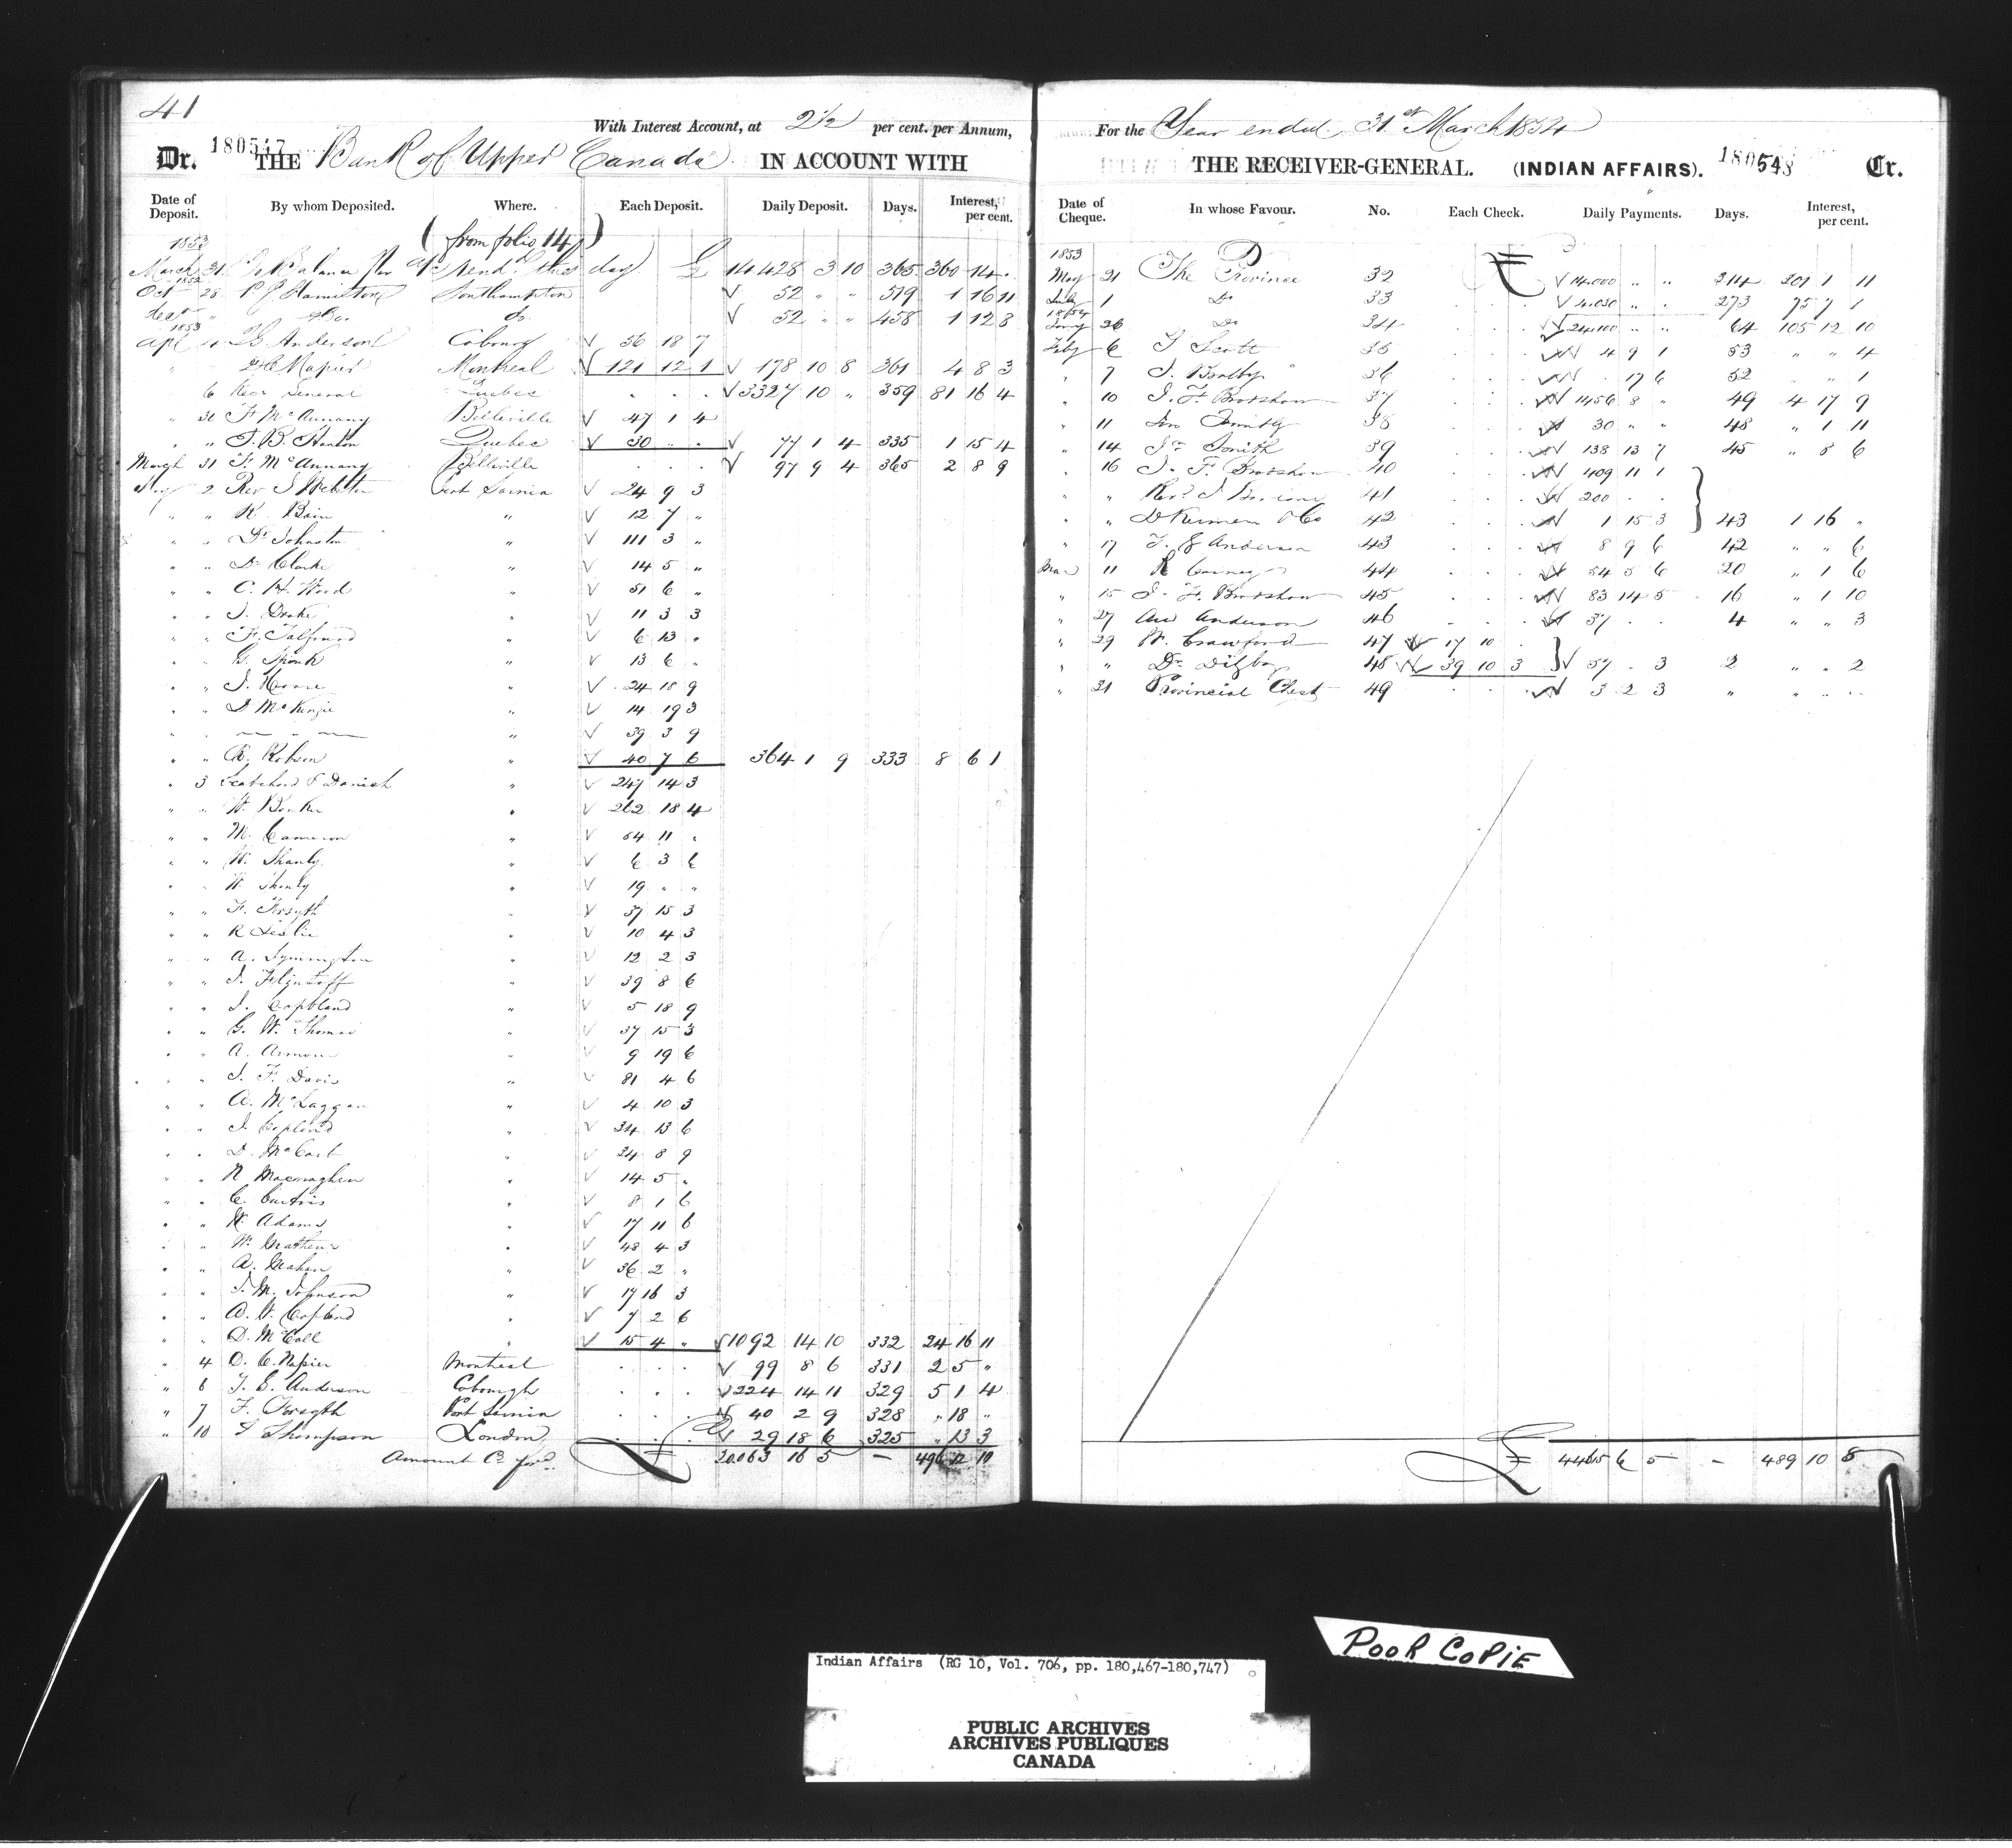 41
180547
With Interest Account, at 2½ per cent. per Annum,
Dr. THE Bank of Upper Canada IN ACCOUNT WITH
Date of Deposit. By whom Deposited. Where. Each Deposit. Daily Deposit. Days. Interest, per cent.
(from folio 14)
1853
March 31 To Balance Per end this day £ 14428 3 10 365 360 14 .
1852
Oct 28 P. J. Hamilton Southampton 52 " " 519 1 16 11
" Do. do. 52 " " 458 1 12 8
1853
Apl 4 T G Anderson Cobourg 56 18 7
" " Napier Montreal 121 12 1 178 10 8 361 4 8 3
6 Rec General Quebec . . . 3327 10 " 359 81 16 4
" 31 F. McAnnany Belleville 47 1 4
" " Quebec 30 " . 77 1 4 335 1 15 4
March 31 F. McAnnany Belleville . . . 97 9 4 365 2 8 9
May 2 Rev J Webster Port Sarnia 24 9 3
" " R. Bain " 12 7 "
" " Dr Johnston " 111 3 "
" " Dr Clarke " 14 5 "
" " C. H. Wood " 51 6 "
" " J. Drake " 11 3 3
" " F. Talfourd " 6 13 "
" " G. Spink " 13 6 "
" " J. " 24 18 9
" " D McKenzie " 14 19 3
" " — " — " 39 3 9
" " R. Robson " 40 7 6 364 1 9 333 8 6 1
" 3 " 247 14 3
" " W. " 262 18 4
" " M. Cameron " 64 11 "
" " W. Shanly " 6 3 6
" " W Shanly " 19 " "
" " F. Forsyth " 37 15 3
" " R Leslie " 10 4 3
" " A. Symington " 12 2 3
" " J. Flintoff " 39 8 6
" " J. Copland " 5 18 9
" " G. W. Thomas " 37 15 3
" " A. Armour " 9 19 6
" " J. F. Davis " 81 4 6
" " A. McLaggan " 4 10 3
" " J. Copland " 34 13 6
" " D. " 24 8 9
" " N Macnaghen " 14 5 "
" " C. Curtis " 8 1 6
" " W. Adams " 17 11 6
" " W. Mathews " 48 4 3
" " A. " 36 2 "
" " J. M. Johnson " 17 16 3
" " A. W. Copland " 7 2 6
" " D. McCall " 15 4 " 1092 14 10 332 24 16 11
" 4 D. C. Napier Montreal . . . 99 8 6 331 2 5 "
" 6 T. G. Anderson Cobourgh . . . 224 14 11 329 5 1 4
" 7 F. Forsyth Port Sarnia . . . 40 2 9 328 " 18 "
" 10 Thompson London . . . 29 18 6 325 " 13 3
Amount Cd ford. £ 20.063 16 5 — 496 12 10
For the Year ended 31st March 1854
THE RECEIVER-GENERAL. (INDIAN AFFAIRS). 180548 Cr.
Date of Cheque. In whose Favour. No. Each Check. Daily Payments. Days. Interest, per cent.
1853
May 21 The Province 32 £ 14.000 " " 214 201 1 11
July 1 Do 33 4.030 " " 273 75 7 1
1854
Jany 26 Do 34 24.100 " " 64 105 12 10
Feby 6 T Scott 35 4 9 1 53 " " 4
" 7 J. 36 . 17 6 52 " " 1
" 10 J. F. Bradshaw 37 1456 8 " 49 4 17 9
" 11 38 30 " " 48 " 1 11
" 14 Smith 39 138 13 7 45 " 8 6
" 16 J. F. Bradshaw 40 409 11 1
" " Revd J. 41 200 . .
" " D & Co 42 1 15 3 43 1 16 "
" 17 T. G Anderson 43 8 9 6 42 " " 6
Mar 11 R Carney 44 54 5 6 20 " 1 6
" 15 J. F. Bradshaw 45 83 14 5 16 " 1 10
" 27 Anderson 46 37 . . 4 " " 3
" 29 W. Crawford 47 17 10 .
" " Dr Digby 48 39 10 3 57 . 3 2 " " 2
" 31 Provincial Chest 49 3 2 3 " " . .
£ 44615 6 5 — 489 10 8
POOR COPIE
Indian Affairs (RG 10, Vol. 706, pp. 180,467-180,747)
PUBLIC ARCHIVES
ARCHIVES PUBLIQUES
CANADA